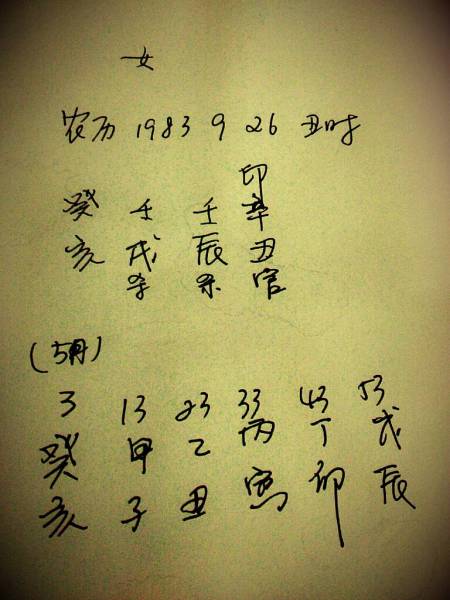 女
农历 1983 9 26 丑时
印
癸 壬 壬 辛
亥 戌 辰 丑
杀 杀 官
3 13 23 33 43 53
癸 甲 乙 丙 丁 戊
亥 子 丑 寅 卯 辰